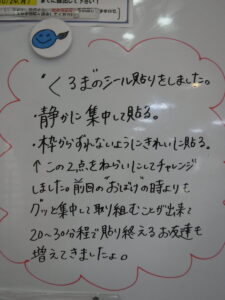 ・くるまのシール貼りをしました。
・静かに集中して貼る。
・枠からずれないようにきれいに貼る。
↑この2点をねらいにしてチャレンジ
しました。前回の"おばけ"の時よりも
グッと集中して取り組むことが出来て
20〜30分程で貼り終えるお友達も
増えてきましたよ。